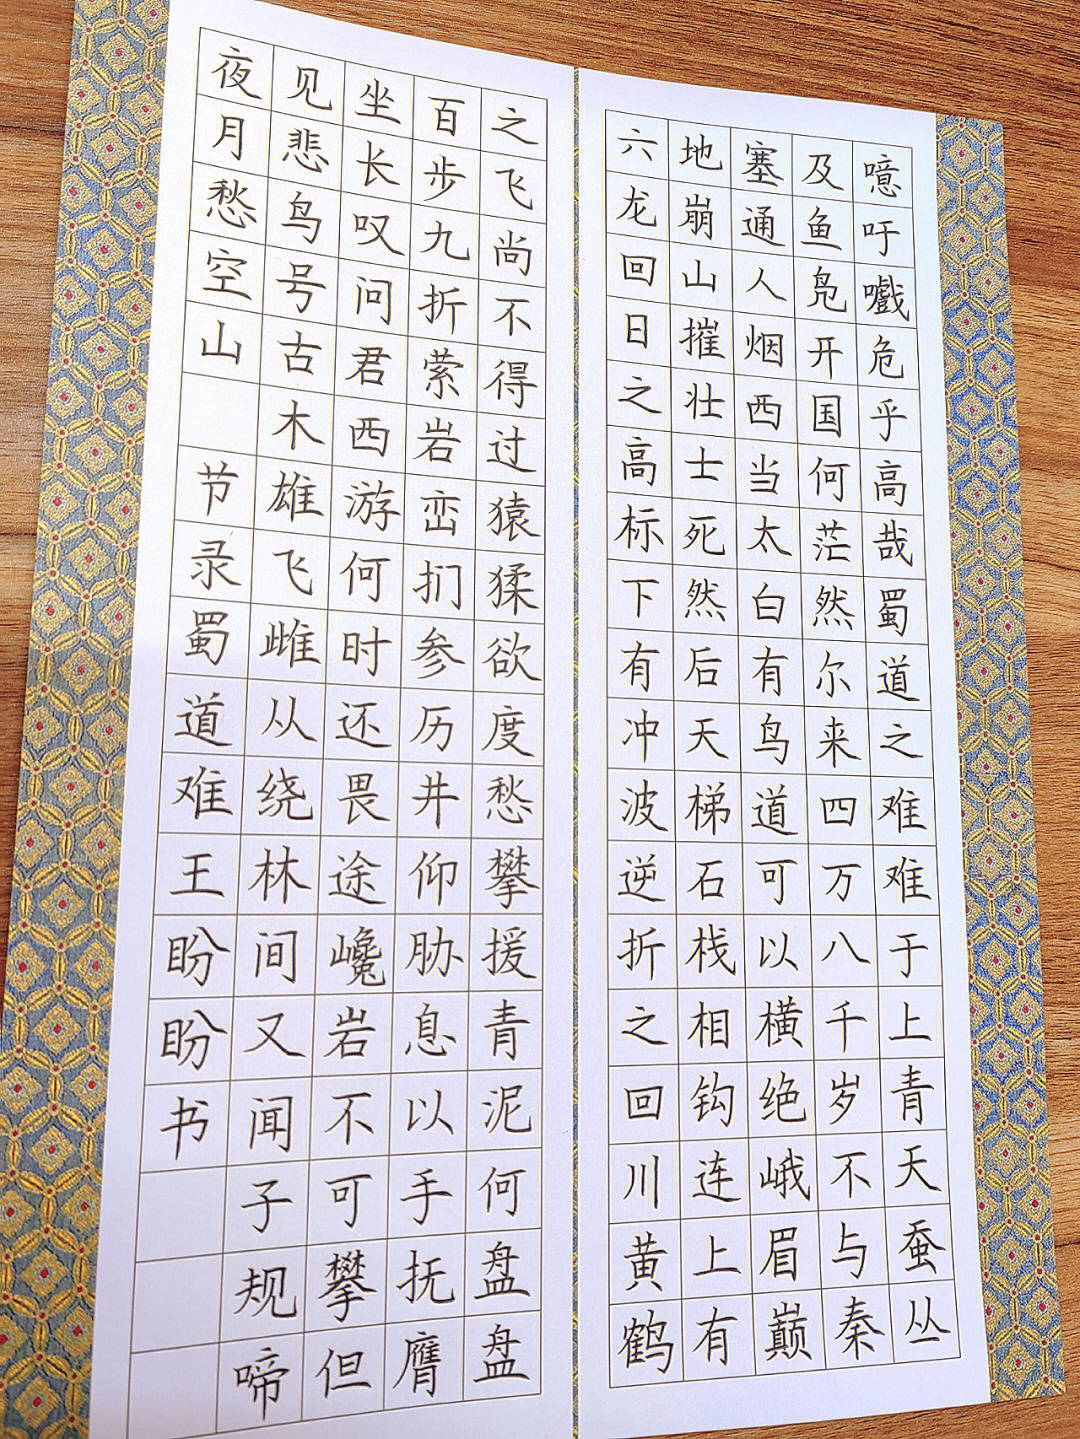 噫吁嚱危乎高哉蜀道之难难于上青天蚕丛
及鱼凫开国何茫然尔来四万八千岁不与秦
塞通人烟西当太白有鸟道可以横绝峨眉巅
地崩山摧壮士死然后天梯石栈相钩连上有
六龙回日之高标下有冲波逆折之回川黄鹤
之飞尚不得过猿猱欲度愁攀援青泥何盘盘
百步九折萦岩峦扪参历井仰胁息以手抚膺
坐长叹问君西游何时还畏途巉岩不可攀但
见悲鸟号古木雄飞雌从绕林间又闻子规啼
夜月愁空山 节录蜀道难王盼盼书